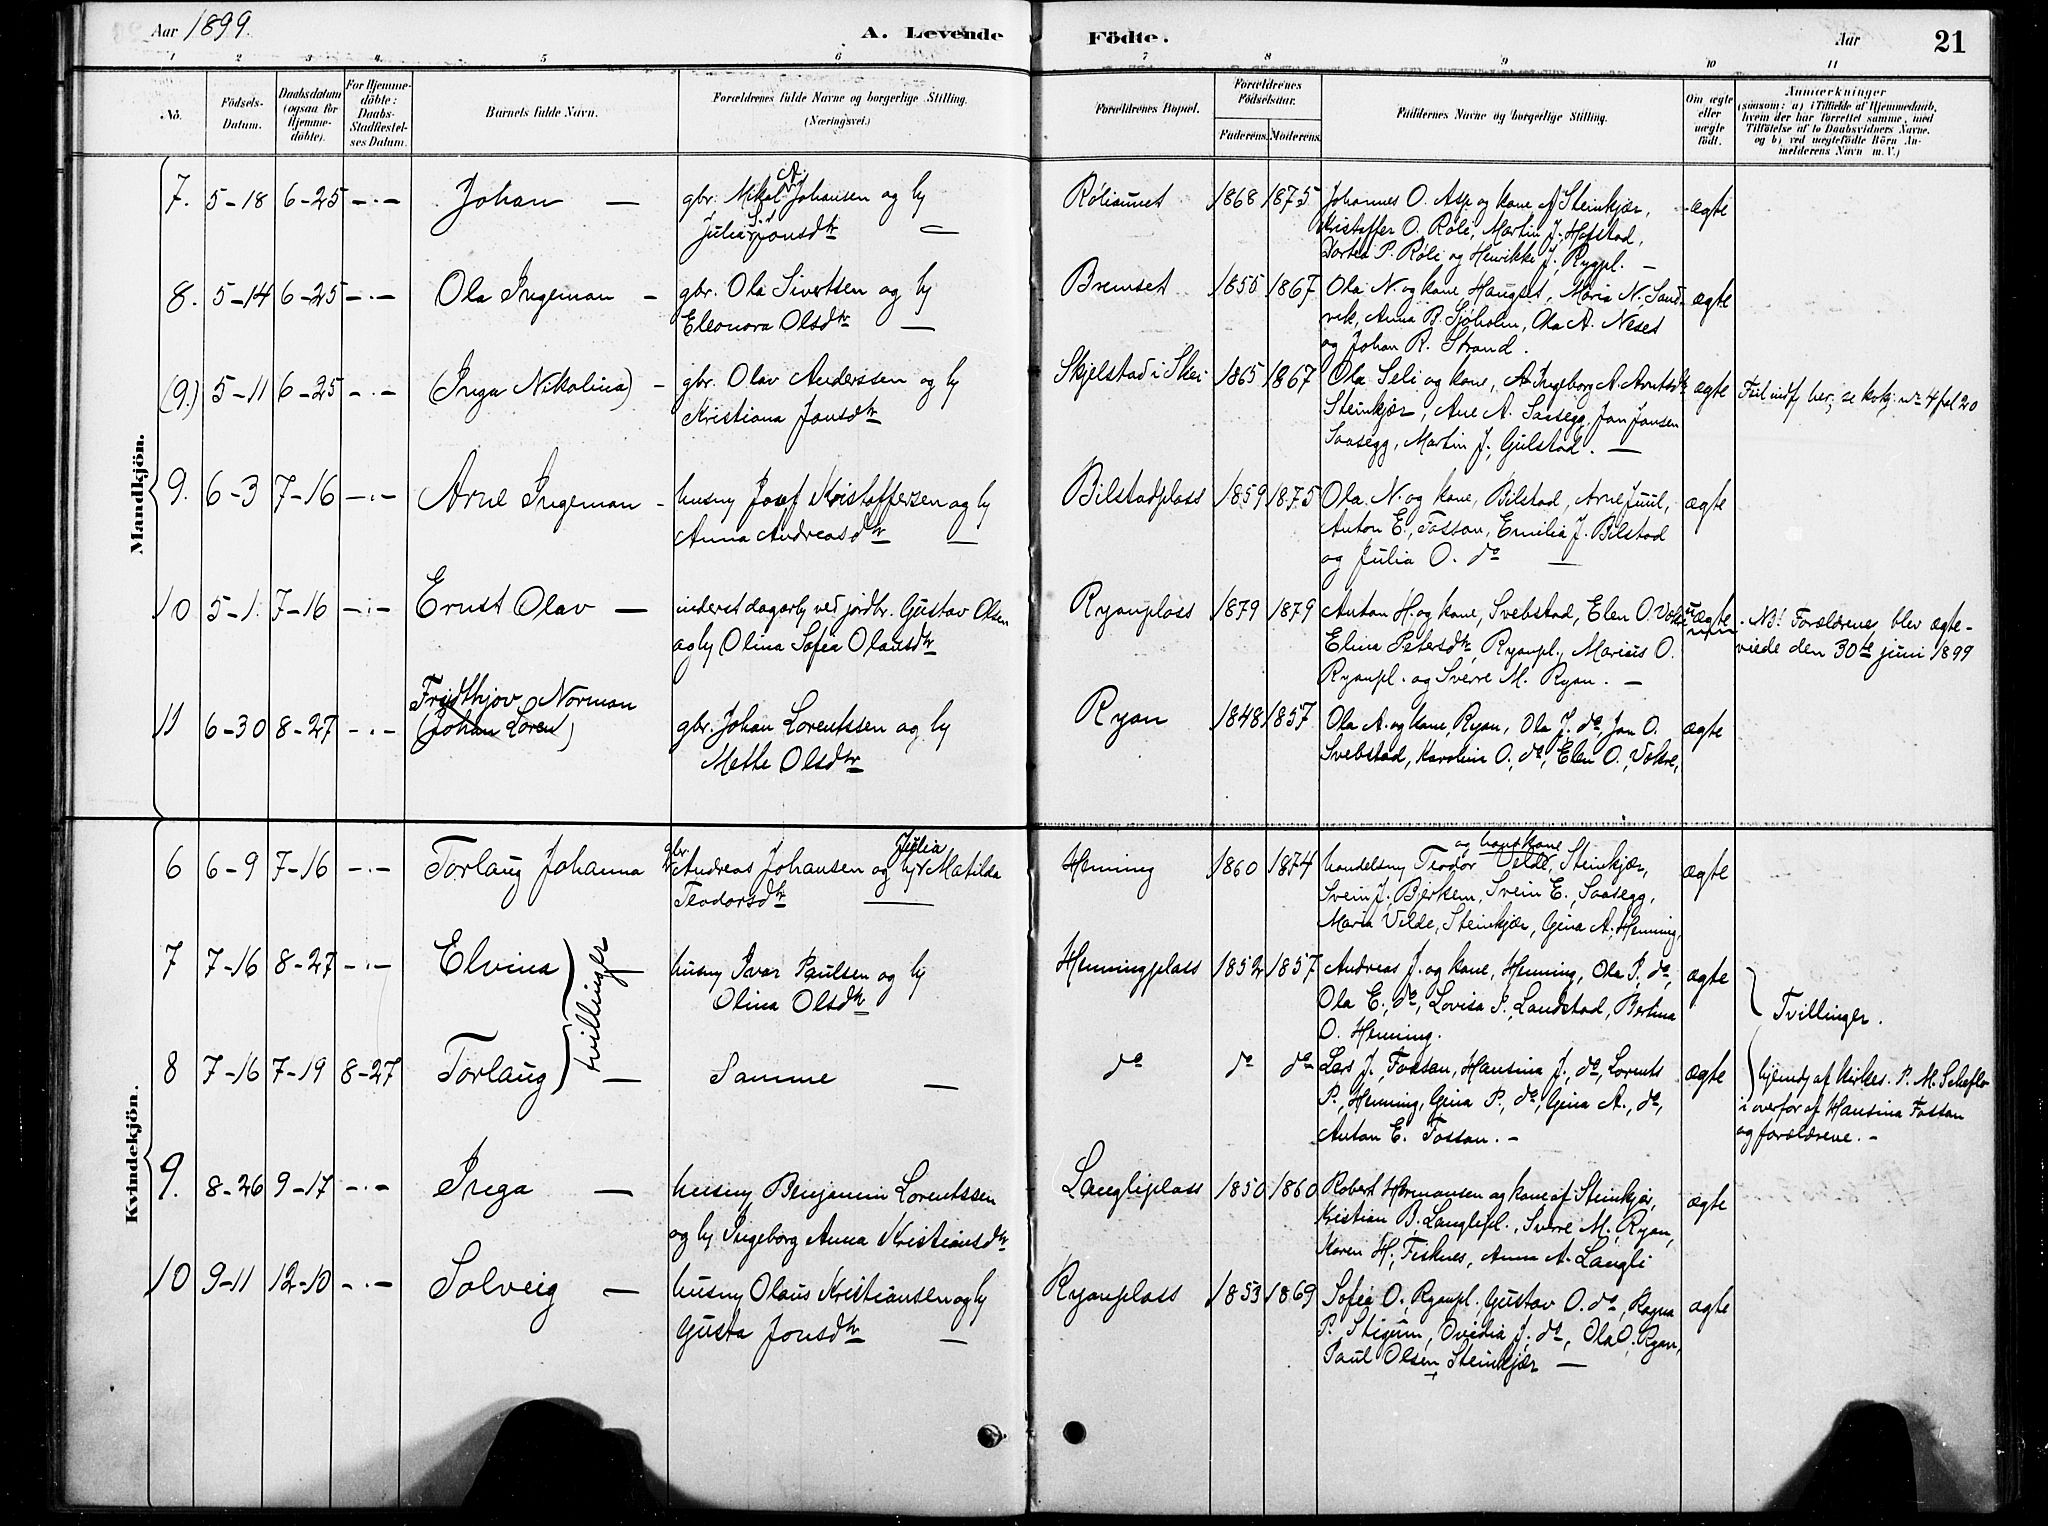 Aar 1899. A. Levende Födte. Aar 21
1 2 3 4. 5 6 7 8 9 10 11
No. Födsels-Datum. Daabsdatum (ogsaa for Hjemmedöbte). For Hjemmedöbte: Daabs-Stadfæstelses Datum. Barnets fulde Navn. Forældrenes fulde Navne og borgerlige Stilling. (Næringsvei.) Forældrenes Bopæl. Forældrenes Födselsaar. Faderens. Moderens. Faddernes Navne og borgerlige Stilling. Om ægte eller uægte födt. Anmærkninger (saasom: a) i Tilfælde af Hjemmedaab, hvem der har forrettet samme, med Tilföielse af to Daabsvidners Navne, og b) ved uægtefödte Börn Anmelderens Navn m. V.)
Mandkjön.
7. 5-18 6-25 -.- Johan — gbr. Nikol. A. Johansen og hv Røliaunet 1868 1875 Johannes O. Asp og kone Steinkjær, ægte
Julia Jonsdtr — Kristoffer O. Røli, Martin J. Hofstad,
Dortea P. Røli og Henrikke J. Rygpl. —
8. 5-14 6-25 -.- Ola Ingeman - gbr. Ola Sivertsen og hv Bremset 1855 1867 Ola N. og kone Haugset, Maria N. Sand- ægte
Eleonora Olsdtr — vik, Anna B. Sjøholm, Ola A. Neset
og Johan R. Strand.
(9.) 5-11 6-25 -.- (Inga Nikolina) - gbr. Olav Anderssen og hv Skjelstad i Skei 1865 1867 Ola Seli og kone, Ingeborg A. Arntsdtr ægte Feil indf her; se kvkj. nr 4 fol 20
Kristiana Jonsdtr Steinkjær, Ane A. Saasegg, Jon Jonsen
Saasegg, Martin J. Gulstad. —
9. 6-3 7-16 -.- Arne Ingeman - husmy Josef Kristoffersen og hv Bilstadplass 1859 1875 Ola N. og kone, Bilstad, Arne Juul, ægte
Anna Andreasdtr — Anton E. Fossan, Emilia J. Bilstad
og Julia O. do —
10 5-1. 7-16 -.- Ernst Olav — inderst dagarb ved jordbr. Gustav Olsen Ryanplass 1879 1879 Anton H. og kone, Svebstad, Elen O. Vokre uægte NB! Forældrene blev ægte-
og hv Olina Sofia Olausdtr Elina Petersdtr, Ryanpl., Marius O. viede den 30te juni 1899
Ryanpl. og Sverre M. Ryan. —
Fridthjov Norman
11 6-30 8-27 -.- (Johan Loren) gbr. Johan Lorentssen og hv Ryan 1848 1857 Ola A. og kone, Ryan, Ola J. do, Jon O. ægte
Mette Olsdtr Svebstad, Karolina O., do, Elen O., Vokre,
Kvindekjön.
6 6-9 7-16 -.- Torlaug Johanna gbr Andreas Johansen og hv Julia Matilda Henning 1860 1874 handelsmy Teodor og hans kone Velde, Steinkjær, ægte
Teodorsdtr — Svein J. Bjerkem, Svein E., Saasegg,
Maria Velde, Steinkjær, Gina A. Henning,
7 7-16 8-27 -.- Elvina husmy Ivar Paulsen og hv Henningplass 1852 1857 Andreas J. og kone, Henning, Ola P. do, ægte
tvillinger
Olina Olsdtr Ola E., do, Lovisa P., Landstad, Bertina Tvillinger.
O. Henning.
8 7-16 7-19 8-27 Torlaug — Samme — do do do Lars J., Fossan, Hansina J., do, Lorents ægte hjemdy af kirkes. P. M. Scheflo
P., Henning, Gina P., do, Gina A., do, i overfor af Hansina Fossan
Anton E. Fossan. - og forældrene. -
9. 8-26 9-17 -.- Inga — husmy Benjamin Lorentssen Langliplass 1850 1860 Robert Hermansen og kone af Steinkjær, ægte
og hv Ingeborg Anna Kristiansdtr Kristian B. Langlipl., Sverre M. Ryan,
Karen H. Fisknes, Anna A. Langli
10 9-11 12-10 -.- Solveig — husmy Olaus Kristiansen og hv Ryanplass 1853 1869 Sofia O., Ryanpl., Gustav O. do, Ragna ægte
Gusta Jonsdtr — P. Stigum, Ovidia J. do, Ola O. Ryan,
Paul Olsen Steinkjær —